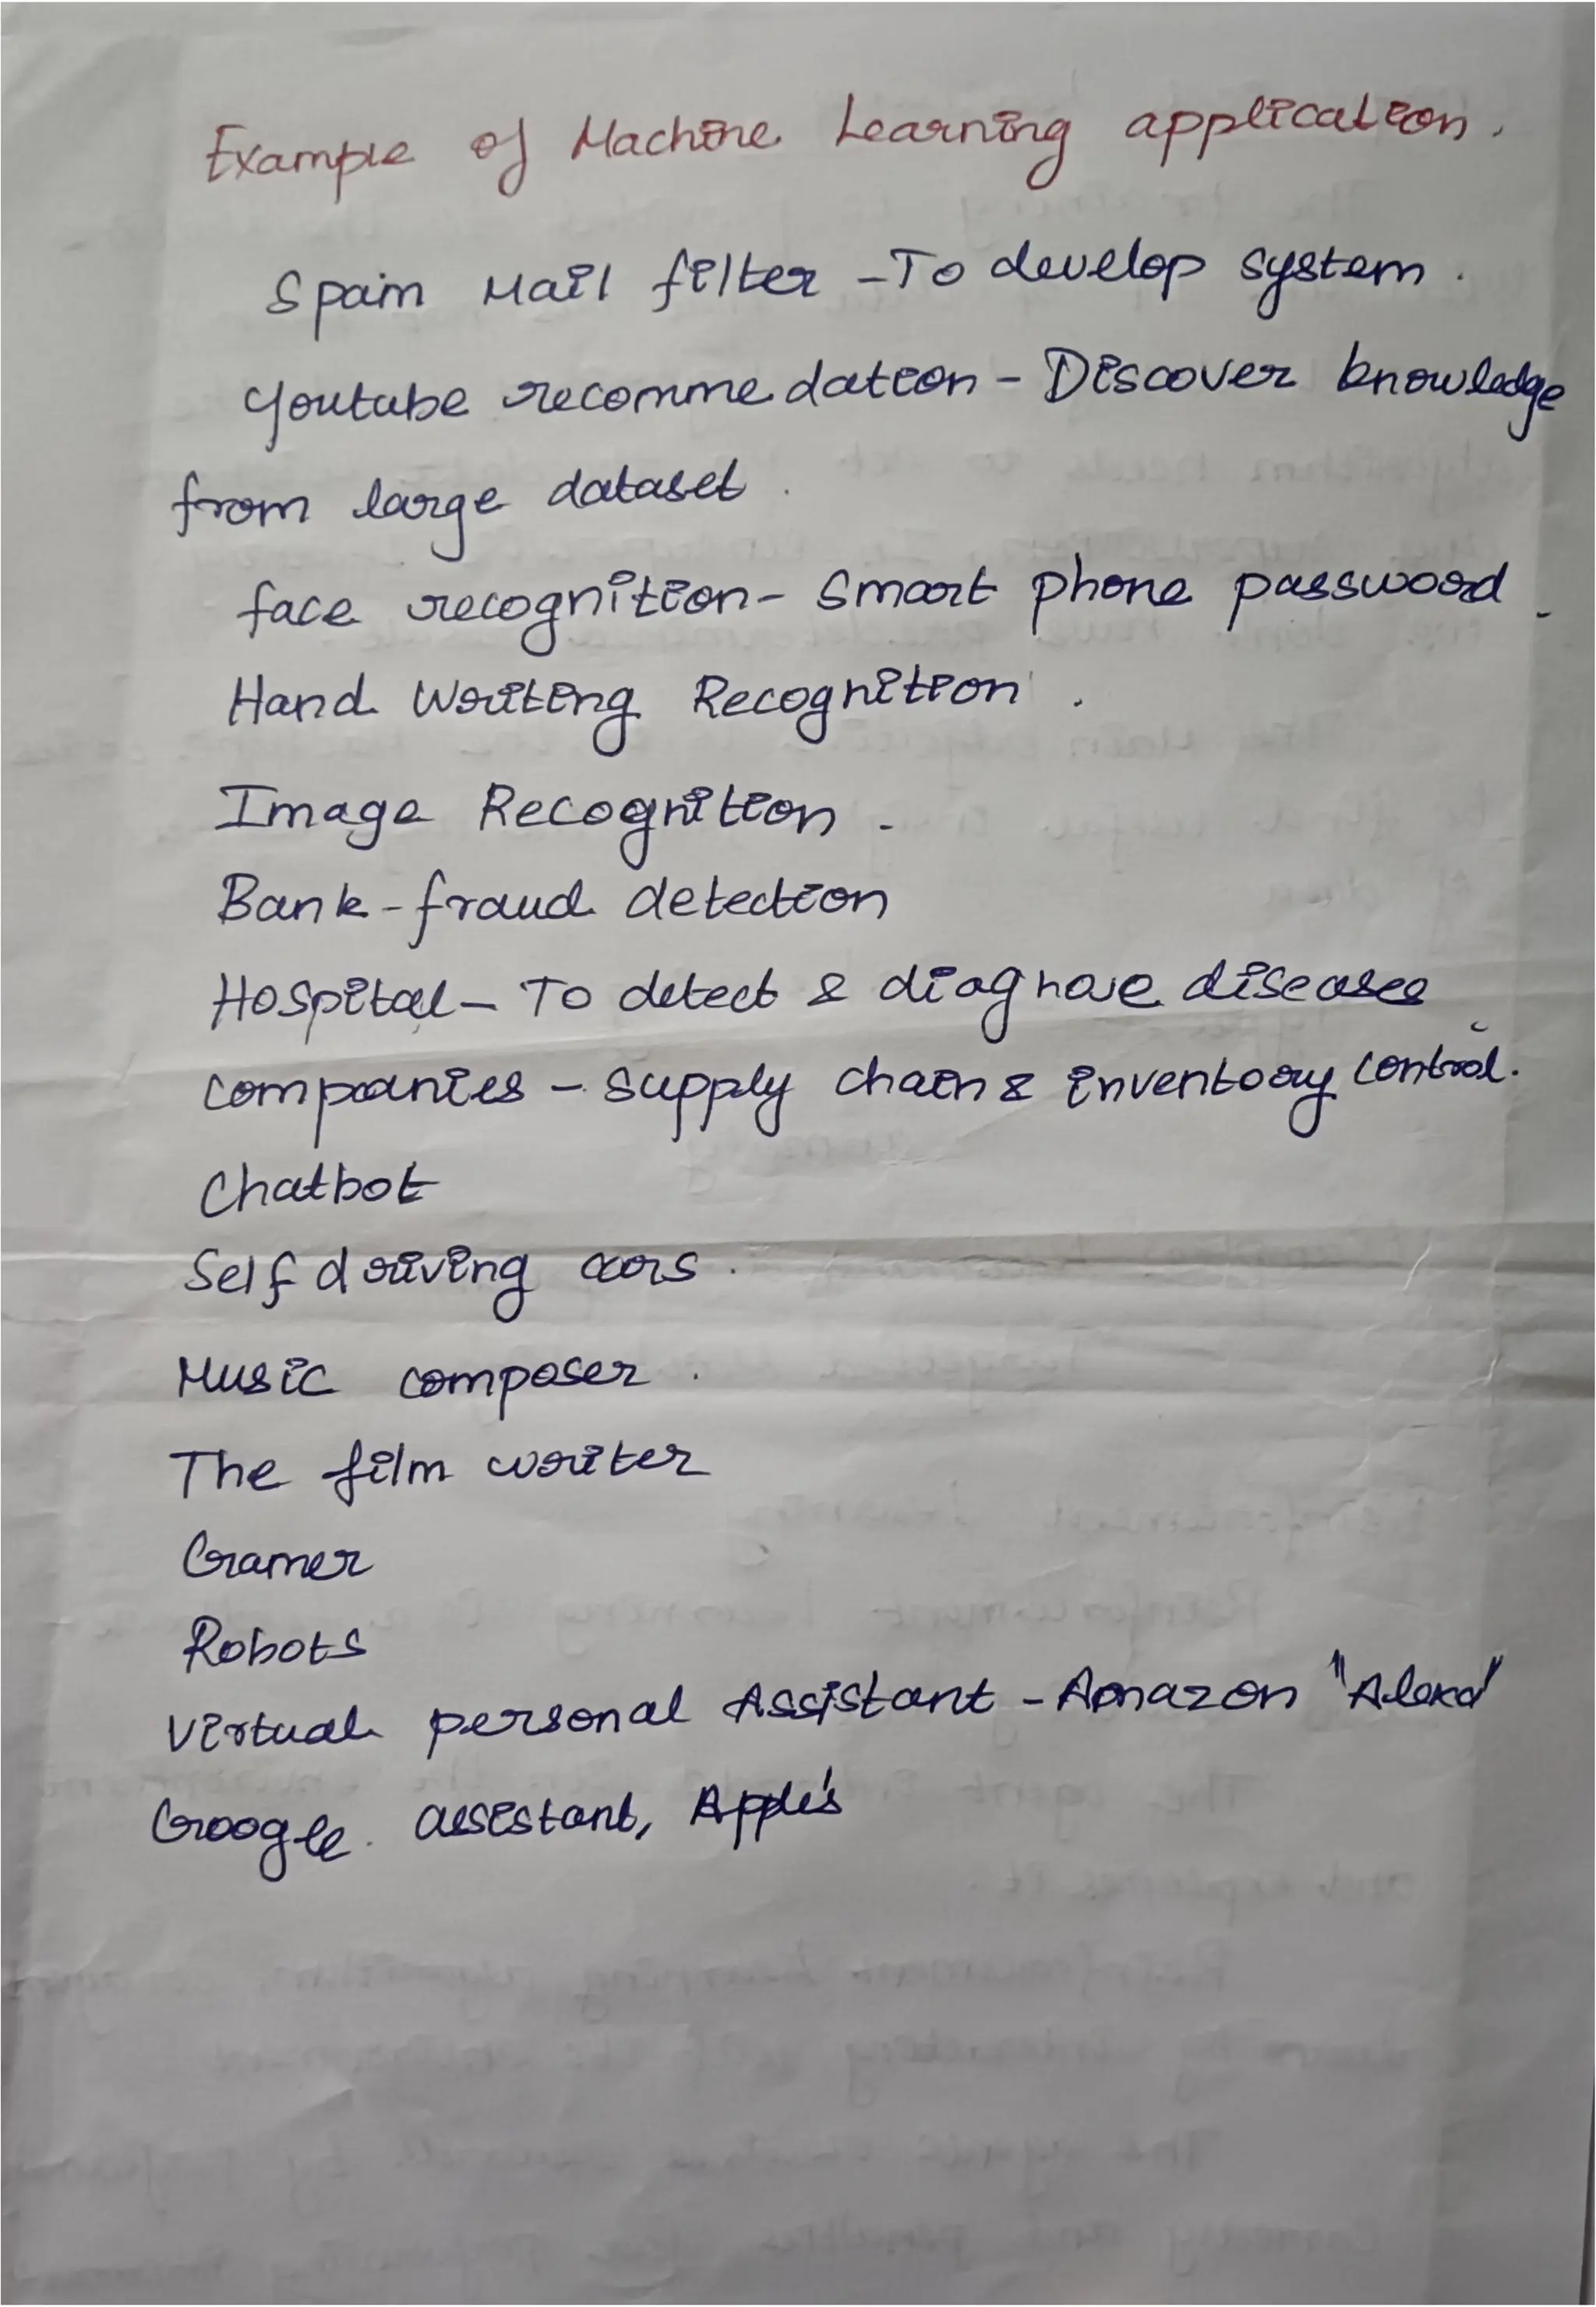 Example of Machine Learning application.
Spain Mail filter - To develop system.
Youtube recomme dation - Discover knowledge
from large dataset.
face recognition - Smart phone password.
Hand Writing Recognition.
Image Recognition.
Bank - fraud detection
Hospital - To detect & diagnose diseases
companies - Supply chain & inventory control.
Chatbot
Self driving cars.
Music composer.
The film writer
Gramer
Robots
Virtual personal Assistant - Amazon "Alexa"
Google assistant, Apple's